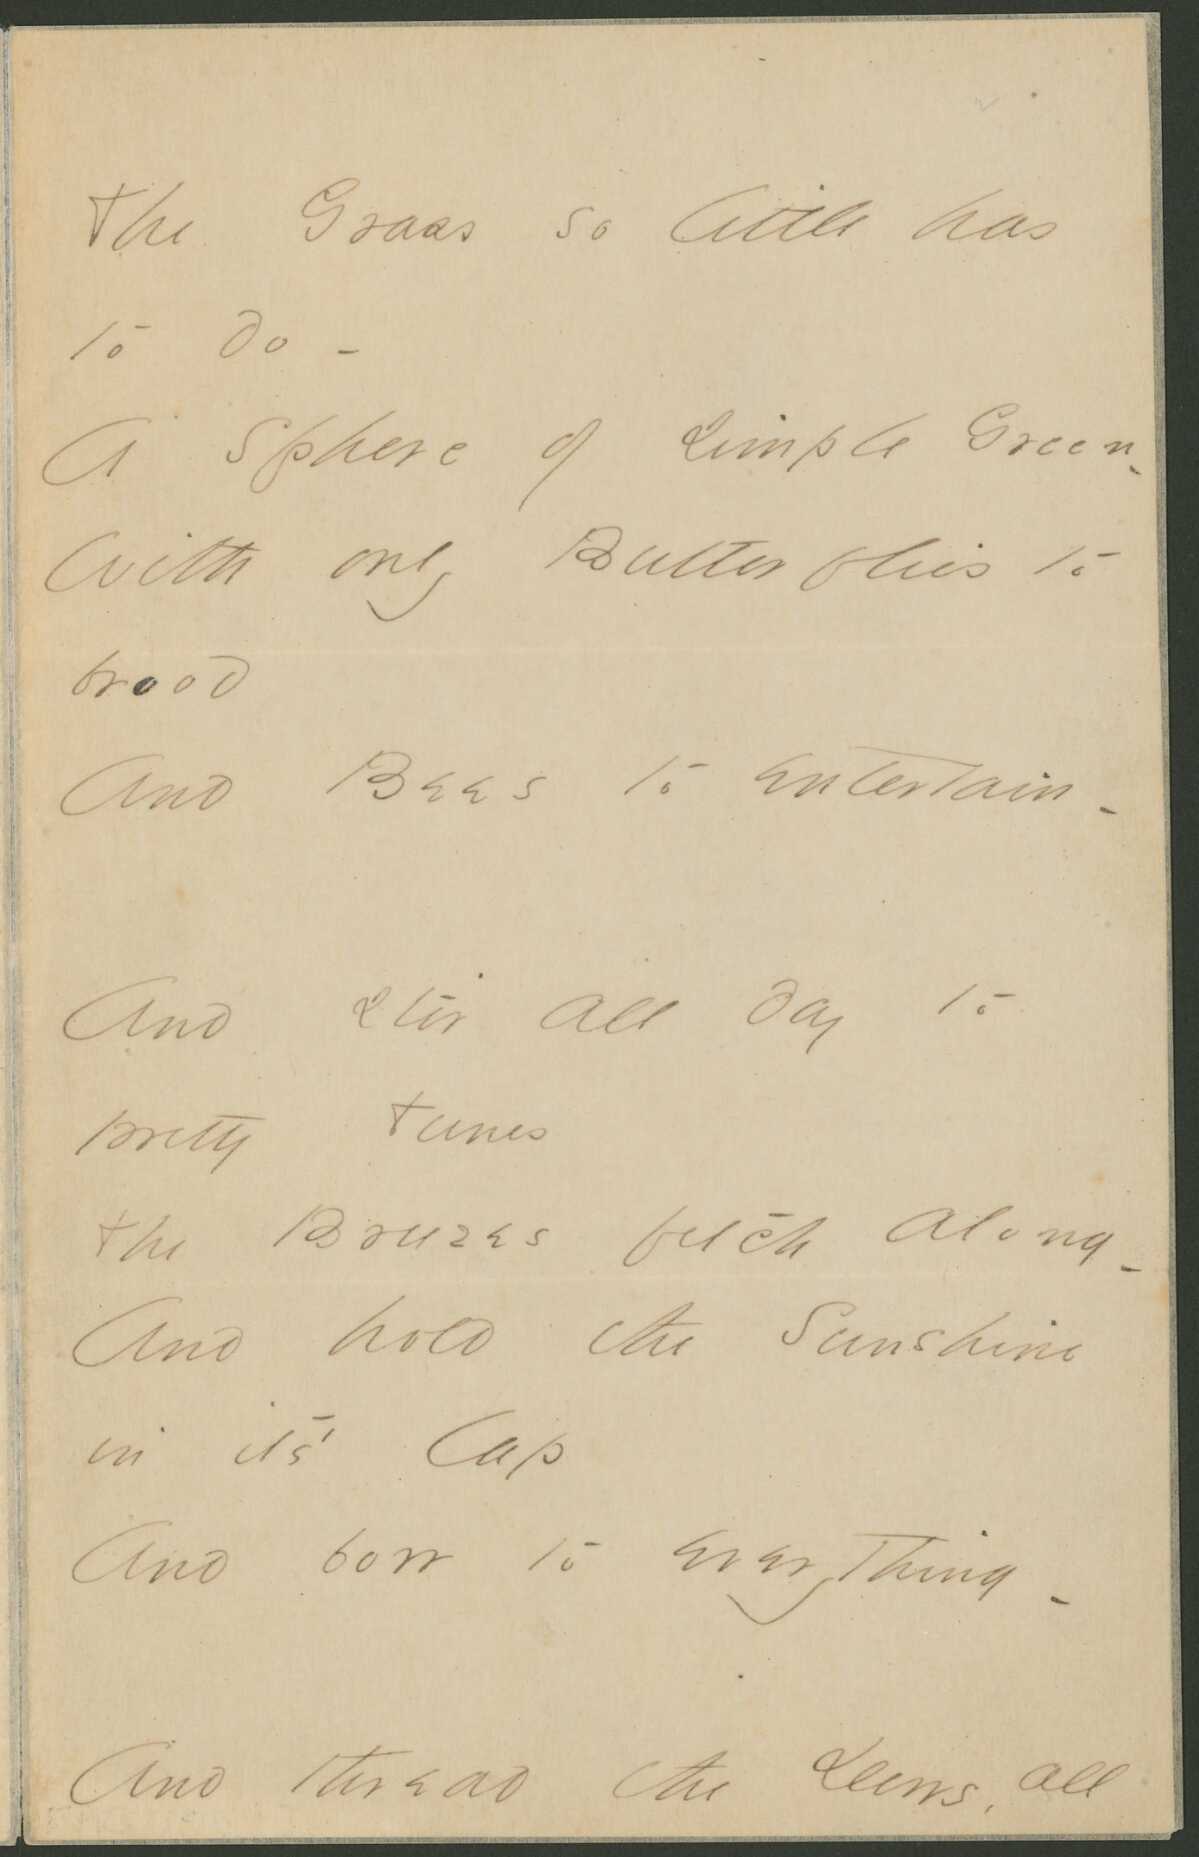 The Grass so little has
to do -
A Sphere of simple Green -
With only Butterflies to
brood
And Bees to entertain -
And stir all day to
pretty tunes
The Breezes fetch along -
And hold the Sunshine
in it's Lap
And bow to everything -
And thread the Dews, all